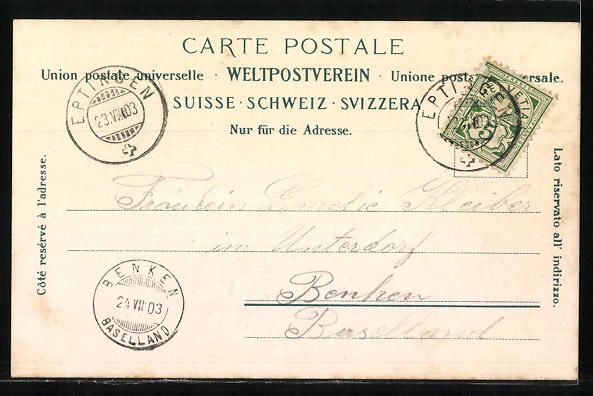 CARTE POSTALE
Union postale universelle · WELTPOSTVEREIN · Unione postale universale.
SUISSE · SCHWEIZ · SVIZZERA
Nur für die Adresse.
EPTINGEN
23.VII.03
EPTINGEN
HELVETIA
5
Côté reservé à l'adresse.
Lato riservato all' indirizzo.
Fräulein Emelie Kleiber
im Unterdorf
Benken
Baselland
BENKEN
24 VII 03
BASELLAND